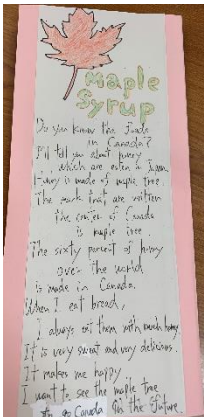 Maple
Syrup
Do you know the foods
in Canada?
I'll tell you about honey
which are eaten in
Honey is made of maple tree.
The mark that are written
the center of Canada
is maple tree.
The sixty percent of honey
over the world
is made in Canada.
When I eat bread,
I always eat them with much honey
It is very sweat and very delicious.
It makes me happy
I want to see the maple tree
Canada in the future.